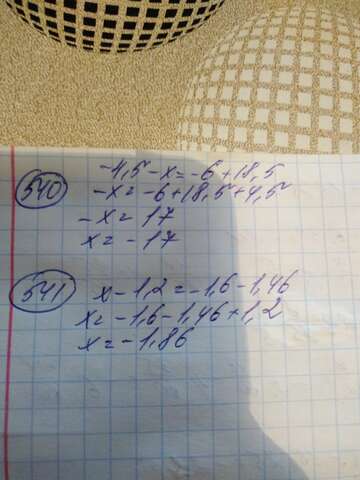 540
-4,5 - x = -6 + 18,5
-x = -6 + 18,5 + 4,5
-x = 17
x = -17
541
x - 1,2 = -1,6 - 1,46
x = -1,6 - 1,46 + 1,2
x = -1,86